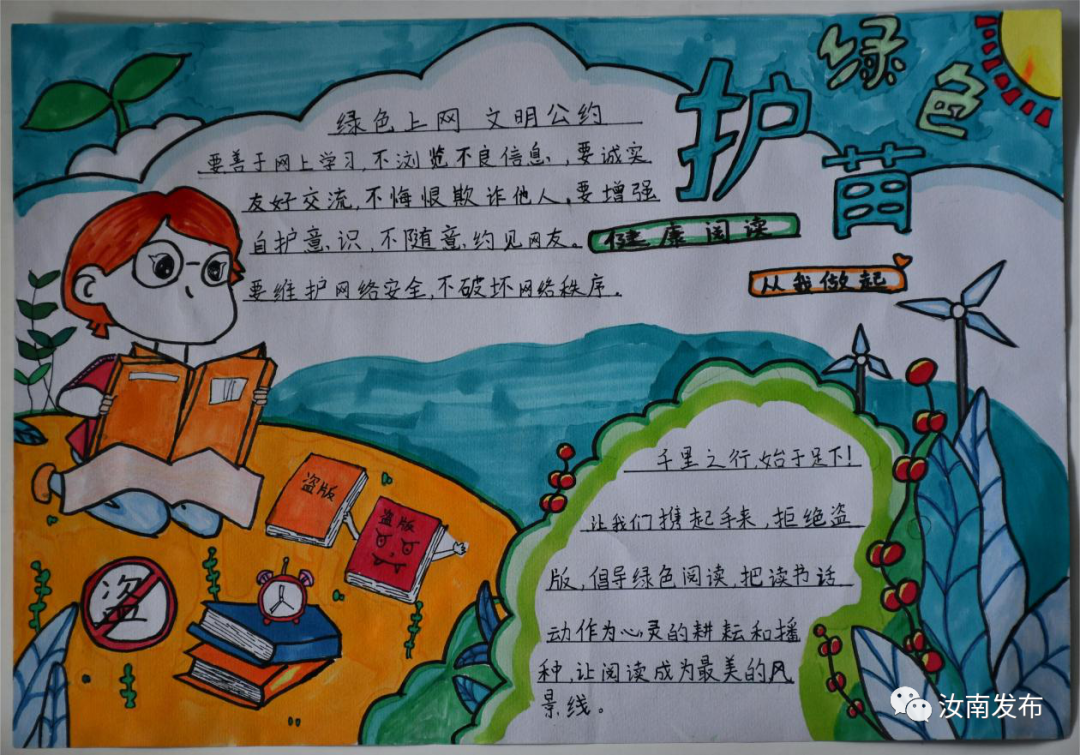 绿色
护苗
健康阅读
从我做起
绿色上网 文明公约
要善于网上学习,不浏览不良信息,要诚实
友好交流,不悔恨欺诈他人。要增强
自护意识,不随意约见网友。
要维护网络安全,不破坏网络秩序.
盗版
盗版
盗
千里之行,始于足下!
让我们携起手来,拒绝盗
版,倡导绿色阅读,把读书活
动作为心灵的耕耘和播
种,让阅读成为最美的风
景线。
汝南发布